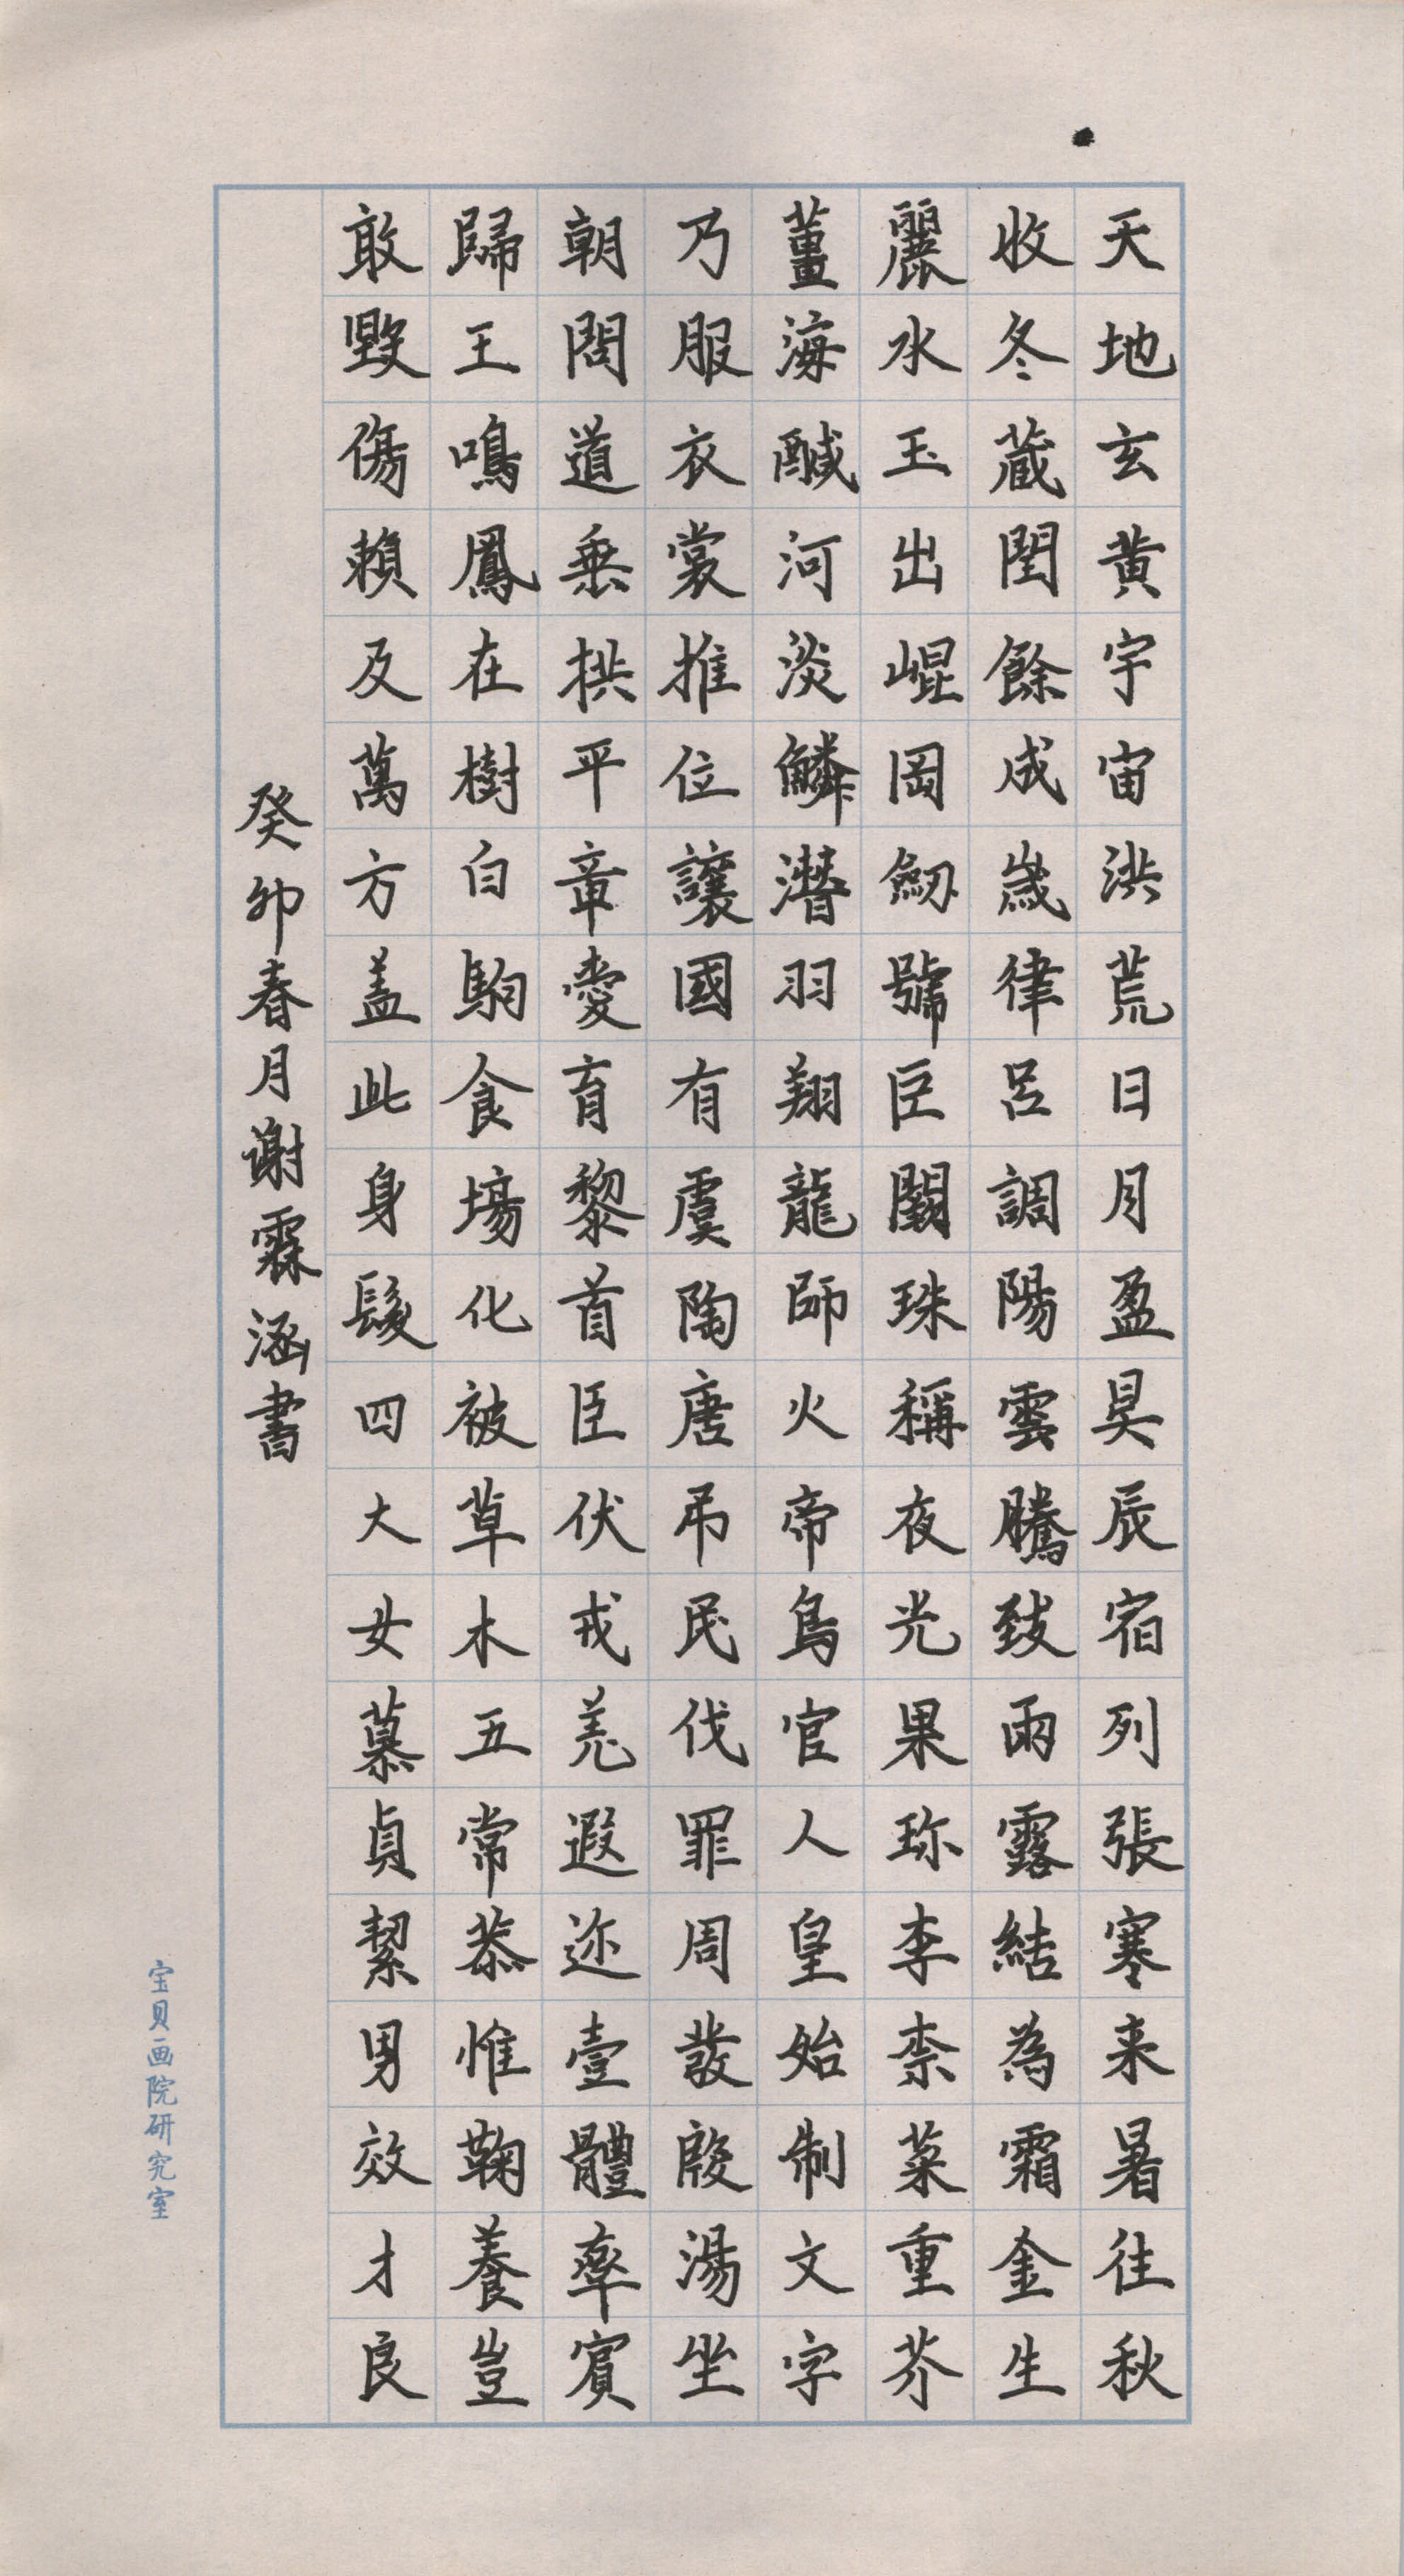 天地玄黄宇宙洪荒日月盈昃辰宿列張寒来暑往秋
收冬蔵閏餘成歲律呂調陽雲騰致雨露結為霜金生
麗水玉出崐岡劒號巨闕珠稱夜光果珎李柰菜重芥
薑海醎河淡鱗潛羽翔龍師火帝鳥官人皇始制文字
乃服衣裳推位讓國有虞陶唐弔民伐罪周發殷湯坐
朝問道垂拱平章愛育黎首臣伏戎羌遐迩壹體率賓
歸王鳴鳳在樹白駒食場化被草木五常恭惟鞠養豈
敢毀傷賴及萬方盖此身髮四大女慕貞絜男效才良
癸卯春月谢霖涵書
宝贝画院研究室